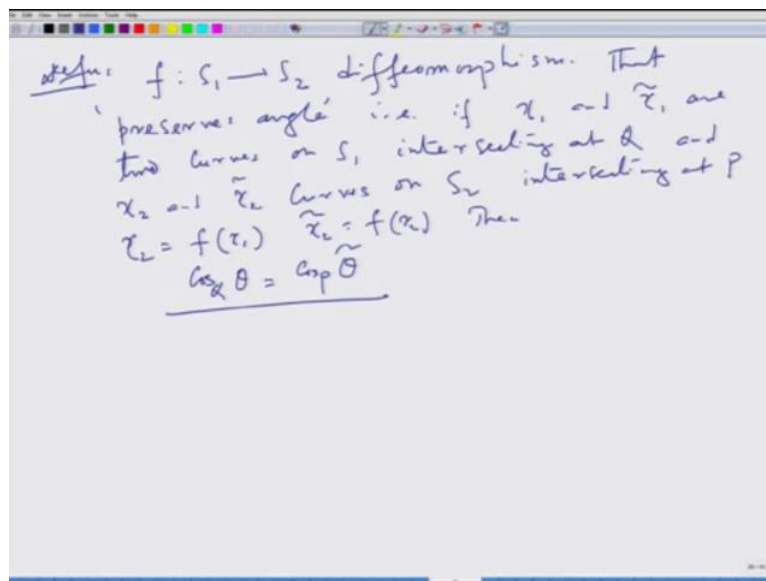 defn: f : S₁ → S₂ diffeomorphism. That
'preserves angle' i.e. if γ₁ and γ̃₁ are
two curves on S₁ intersecting at Q and
γ₂ and γ̃₂ curves on S₂ intersecting at P
γ₂ = f(γ₁) γ̃₂ = f(γ₂) Then
Cos_Q θ = Cos_P θ̃